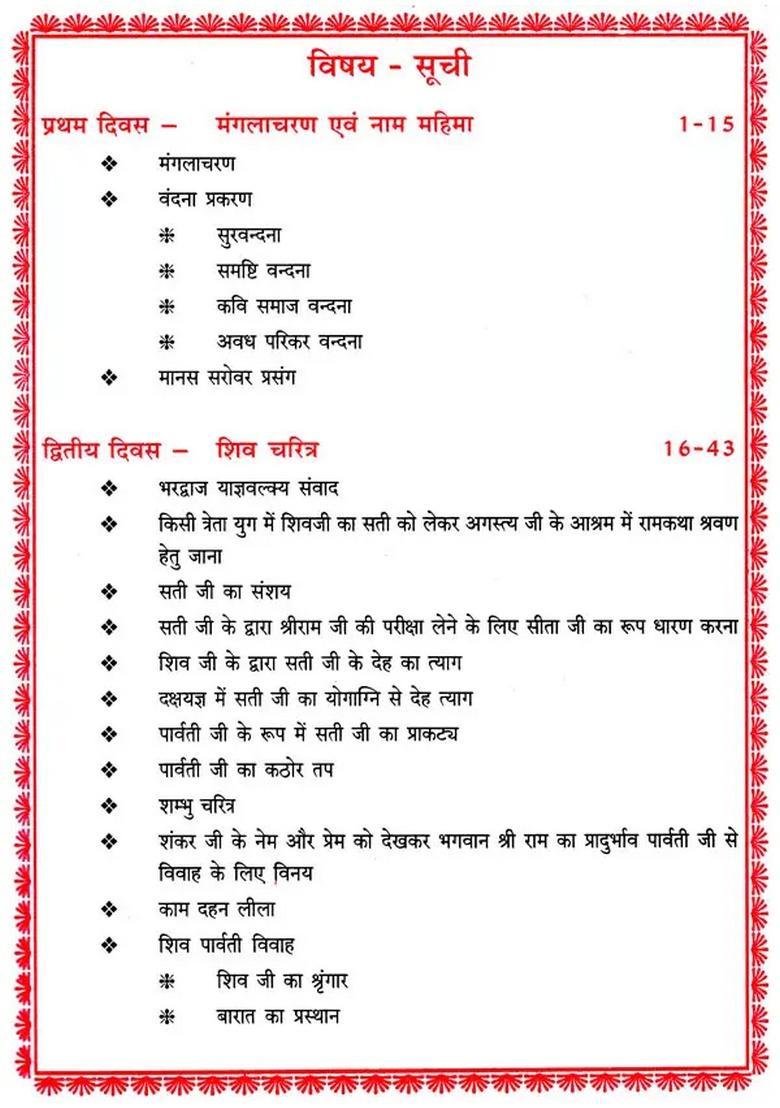 विषय - सूची
प्रथम दिवस – मंगलाचरण एवं नाम महिमा 1-15
❖ मंगलाचरण
❖ वंदना प्रकरण
❈ सुरवन्दना
❈ समष्टि वन्दना
❈ कवि समाज वन्दना
❈ अवध परिकर वन्दना
❖ मानस सरोवर प्रसंग
द्वितीय दिवस – शिव चरित्र 16-43
❖ भरद्वाज याज्ञवल्क्य संवाद
❖ किसी त्रेता युग में शिवजी का सती को लेकर अगस्त्य जी के आश्रम में रामकथा श्रवण
हेतु जाना
❖ सती जी का संशय
❖ सती जी के द्वारा श्रीराम जी की परीक्षा लेने के लिए सीता जी का रूप धारण करना
❖ शिव जी के द्वारा सती जी के देह का त्याग
❖ दक्षयज्ञ में सती जी का योगाग्नि से देह त्याग
❖ पार्वती जी के रूप में सती जी का प्राकट्य
❖ पार्वती जी का कठोर तप
❖ शम्भु चरित्र
❖ शंकर जी के नेम और प्रेम को देखकर भगवान श्री राम का प्रादुर्भाव पार्वती जी से
विवाह के लिए विनय
❖ काम दहन लीला
❖ शिव पार्वती विवाह
❈ शिव जी का श्रृंगार
❈ बारात का प्रस्थान